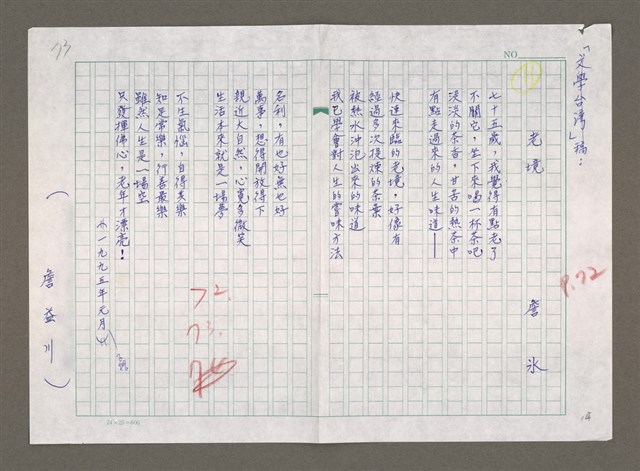 「文學台灣」稿：
NO
老境
詹冰
七十五歲，我覺得有點老了
不關它，坐下來喝一杯茶吧
淡淡的茶香，甘苦的熱茶中
有點走過來的人生味道──
快速來臨的老境，好像有
經過多次提煉的茶葉
被熱水沖泡出來的味道
我已學會對人生的嘗味方法
名利，有也好無也好
萬事，想得開放得下
親近大自然，心寬多微笑
生活本來就是一場夢
不生氣惱，自得其樂
知足常樂，行善最樂
雖然人生是一場空
只發揮佛心，老年才漂亮！
（一九九五年元月）
（詹益川）
P.72
72.
73.
73
24×25=600